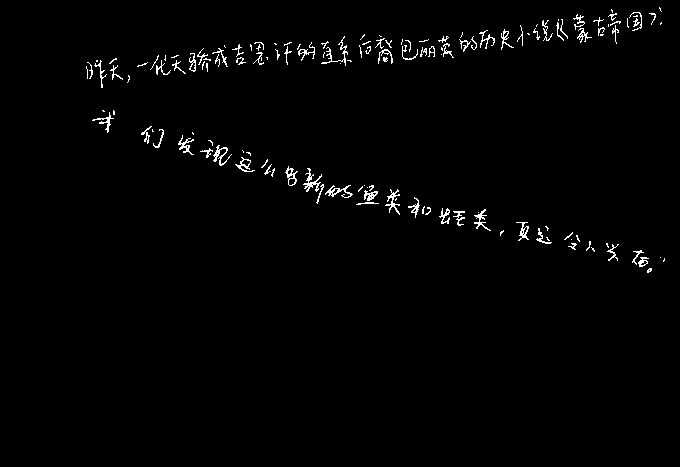 昨天,一代天骄成吉思汗的直系后裔包丽英的历史小说《蒙古帝国》
我们发现这么多新的鱼类和蛙类,真是令人兴奋。”